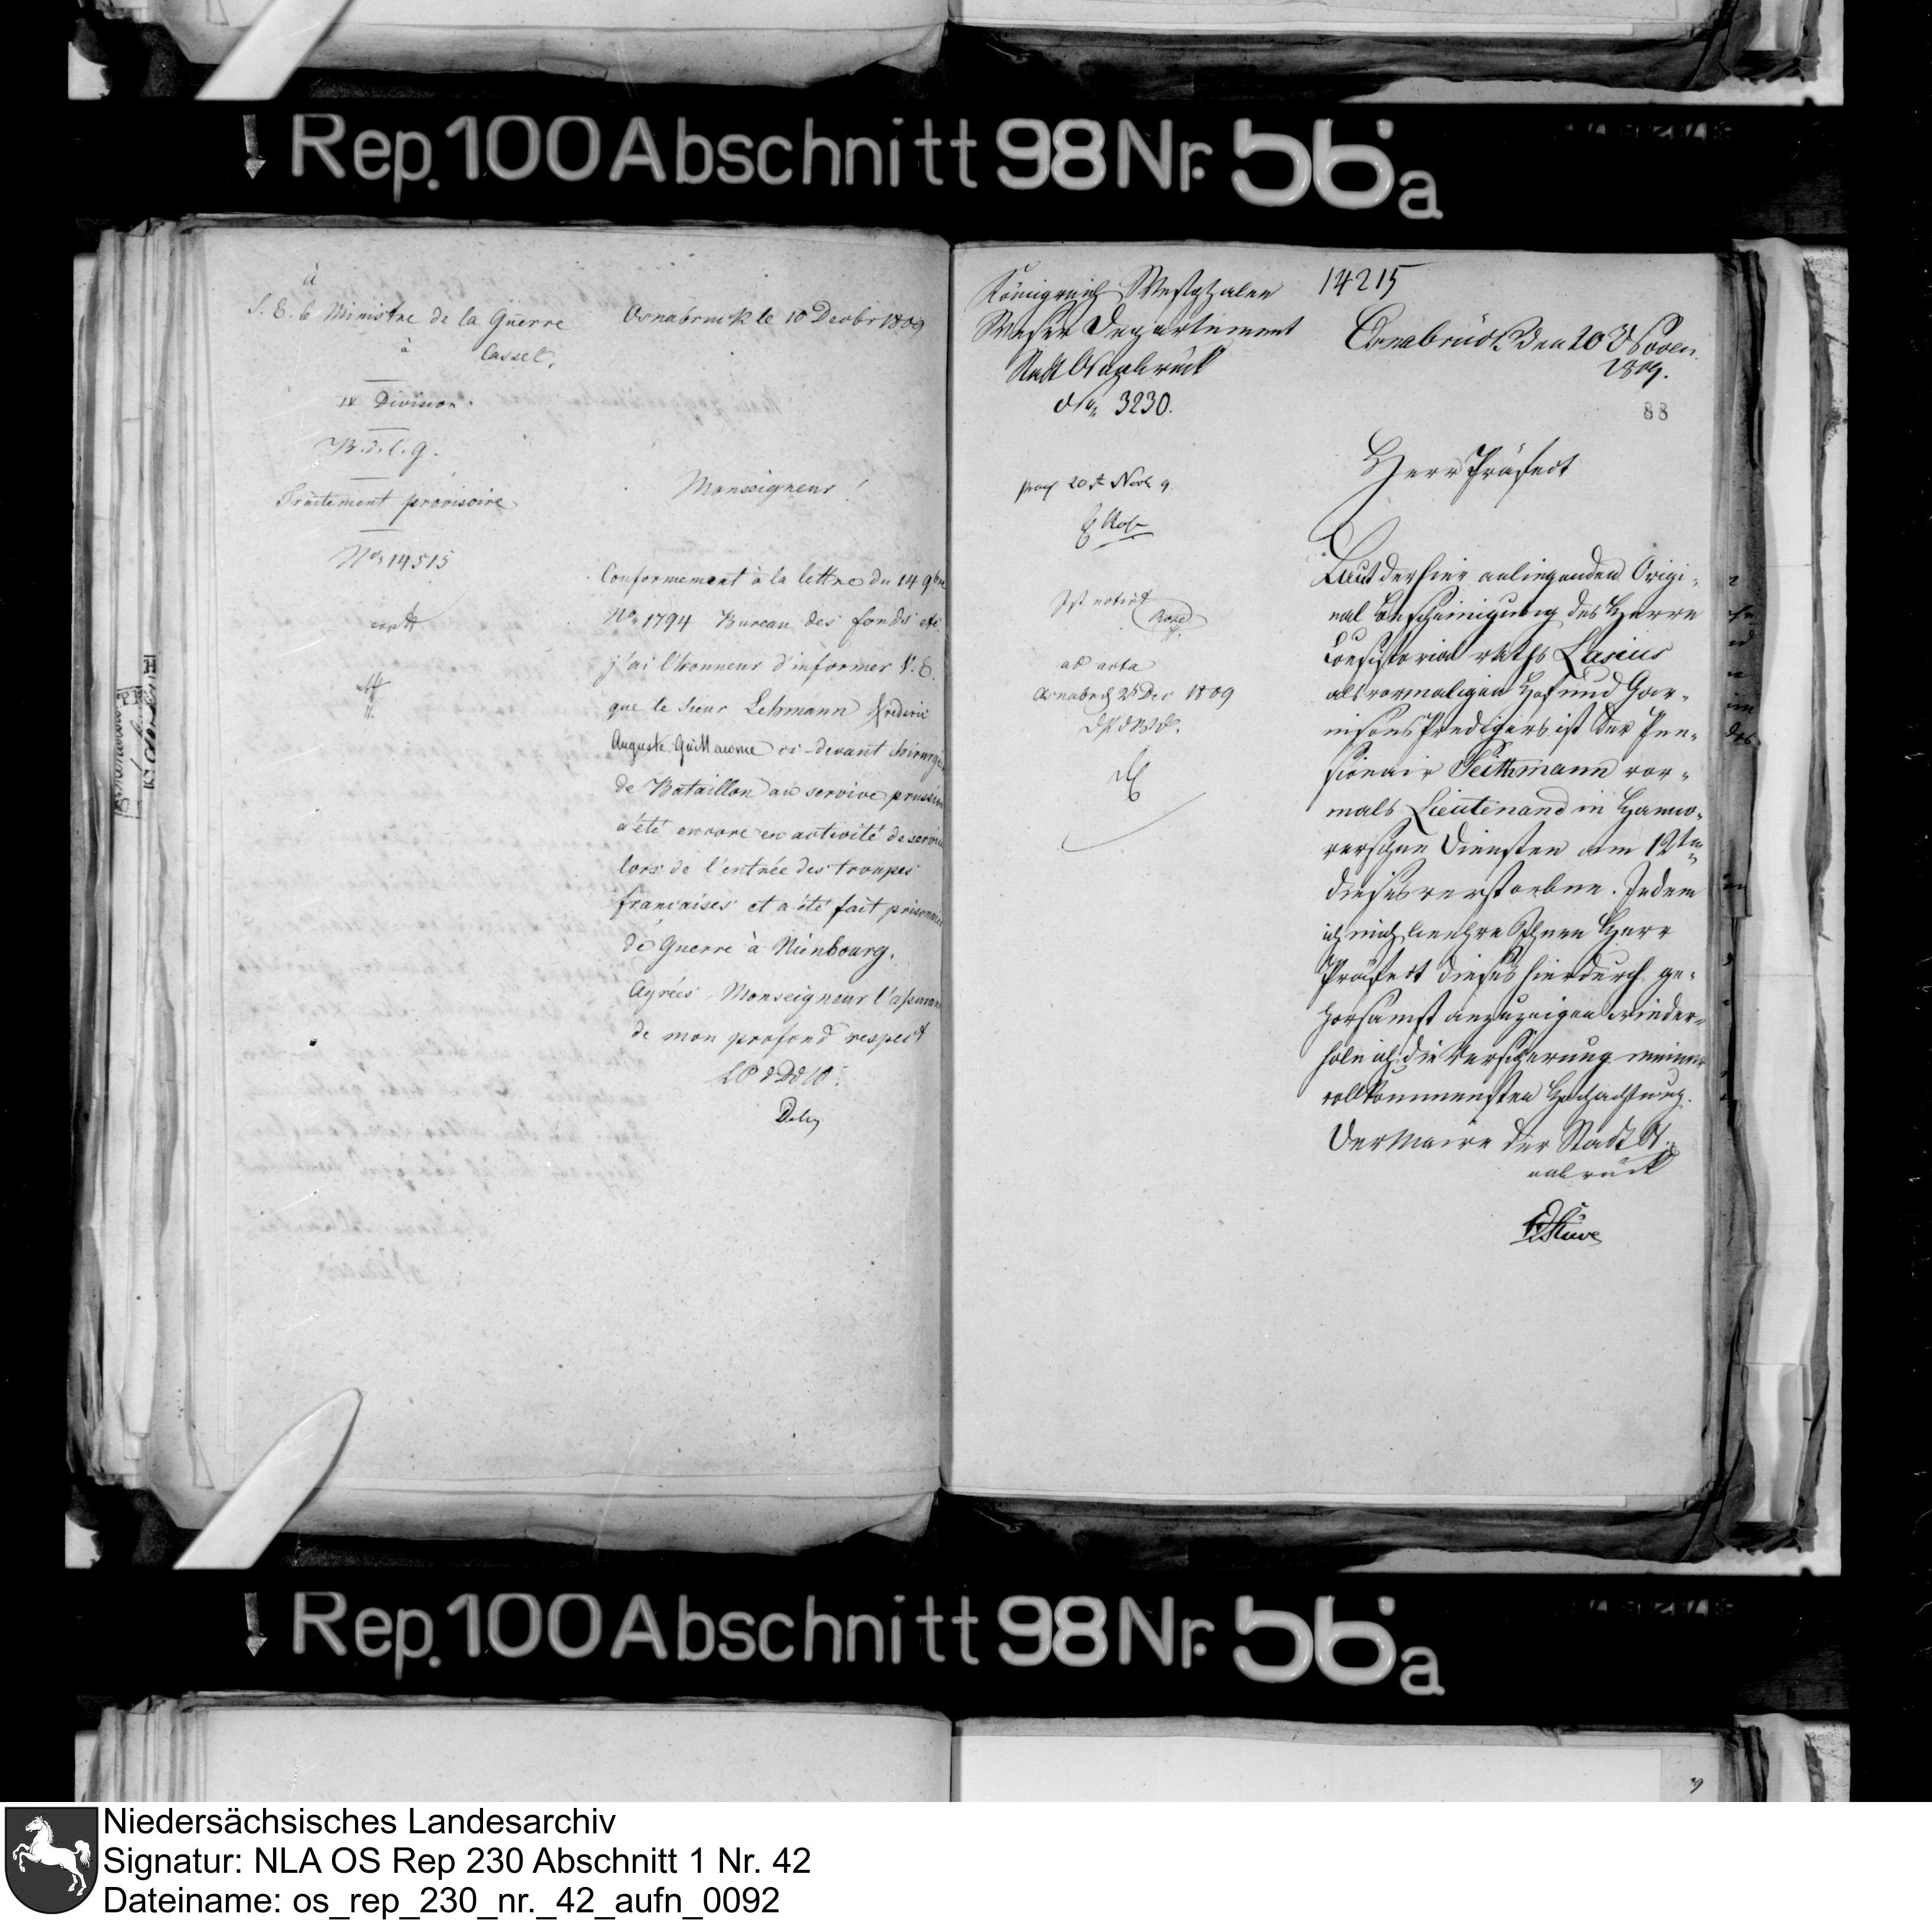 Rep. 100 Abschnitt 98 Nr. 56a
à
S. E. le Ministre de la Guerre
à Cassel.
IV Division.
B. d. l. g.
Traitement provisoire
No 14515
Osnabruck le 10 Decbr 1809
Monseigneur!
Conformement à la lettre du 14 9bre
No 1794 Bureau des fonds etc.
j'ai l'honneur d'informer V. E.
que le Sieur Lehmann Frederic
Auguste Guillaume ci-devant chirurgien
de Bataillon au service prussien
a été encore en activité de service
lors de l'entrée des troupes
francaises et a été fait prisonnier
de Guerre à Nienbourg.
Agréés, Monseigneur l'assurance
de mon profond respect
L P d D d W.
Königreich Westphalen
Weser Departement
Stadt Osnabrück
No 3230.
14215
Osnabrück den 20 Noven.
1809.
88
Herr Präfect
praes 20 t Novb 9.
Ist notirt
ad acta
Osnabrck 25 Dec 1809
Laut der hier anliegenden Origi-
nal Bescheinigung des Herrn
Consistorial raths Lasius
als vormaligen Hof und Gar-
nisons Predigers ist der Pen-
sionair Teithmann vor-
mals Lieutenand in Hanno-
verschen Diensten am 12ten
dieses verstorben. Indem
ich mich beehre Ihnen Herr
Präfect dieses hierdurch ge-
horsamst anzuzeigen wieder-
hole ich die Versicherung meiner
vollkommensten Hochachtung.
Der Maire der Stadt Os-
nabrück
Stüve
Rep. 100 Abschnitt 98 Nr. 56a
Niedersächsisches Landesarchiv
Signatur: NLA OS Rep 230 Abschnitt 1 Nr. 42
Dateiname: os_rep_230_nr._42_aufn_0092